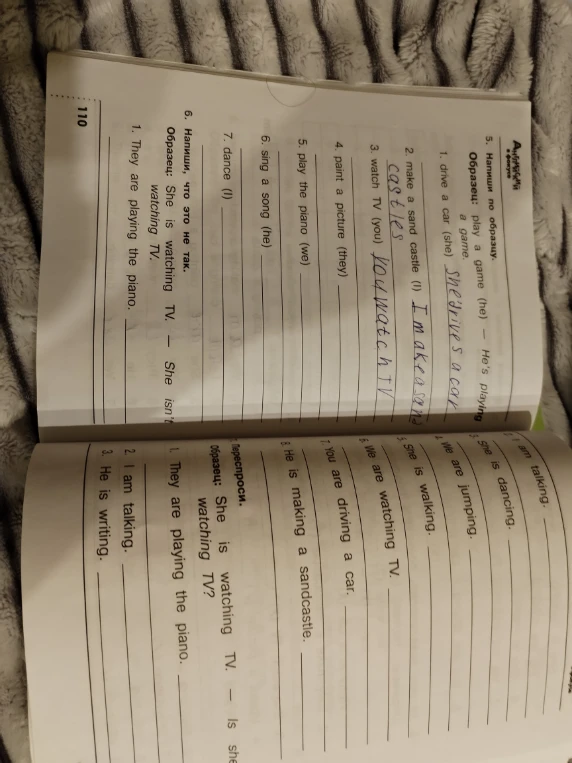 Английский
в фокусе
5. Напиши по образцу.
Образец: play a game (he) — He's playing
a game.
1. drive a car (she) she drives a car
2. make a sand castle (I) I make a sand
castles
3. watch TV (you) you watch TV
4. paint a picture (they)
5. play the piano (we)
6. sing a song (he)
7. dance (I)
6. Напиши, что это не так.
Образец: She is watching TV. — She isn't
watching TV.
1. They are playing the piano.
110
2. I am talking.
3. She is dancing.
4. We are jumping.
5. She is walking.
6. We are watching TV.
7. You are driving a car.
8. He is making a sandcastle.
7. Переспроси.
Образец: She is watching TV. — Is she
watching TV?
1. They are playing the piano.
2. I am talking.
3. He is writing.